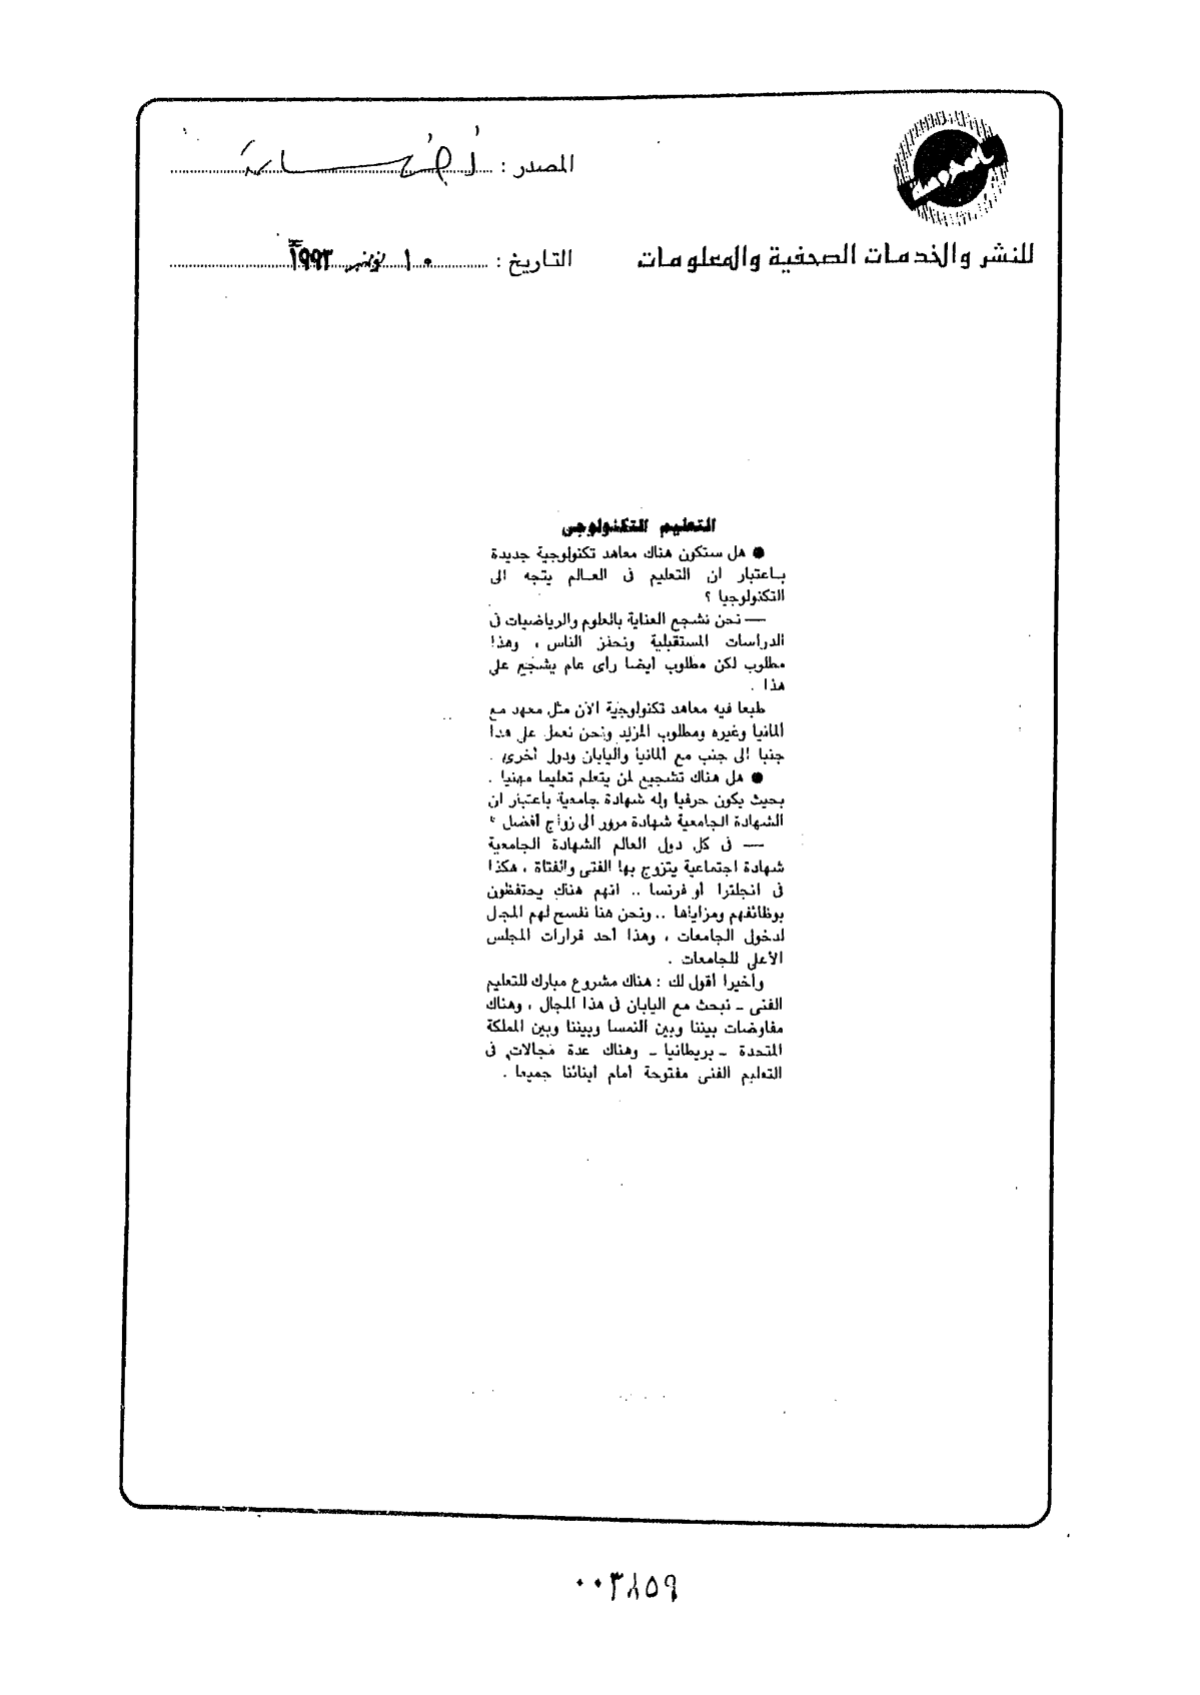 المصدر :
للنشر والخدمات الصحفية والمعلومات
التاريخ : ١٠ نوفمبر ١٩٩٣
التعليم التكنولوجى
● هل ستكون هناك معاهد تكنولوجية جديدة
باعتبار ان التعليم فى العالم يتجه الى
التكنولوجيا ؟
— نحن نشجع العناية بالعلوم والرياضيات فى
الدراسات المستقبلية ونحفز الناس ، وهذا
مطلوب لكن مطلوب أيضا رأى عام يشجع على
هذا .
طبعا فيه معاهد تكنولوجية الآن مثل معهد مع
المانيا وغيره ومطلوب المزيد ونحن نعمل على هذا
جنبا الى جنب مع ألمانيا واليابان ودول أخرى .
● هل هناك تشجيع لمن يتعلم تعليما مهنيا .
بحيث يكون حرفيا وله شهادة جامعية باعتبار ان
الشهادة الجامعية شهادة مرور الى زواج أفضل ؟
— فى كل دول العالم الشهادة الجامعية
شهادة اجتماعية يتزوج بها الفتى والفتاة ، هكذا
فى انجلترا أو فرنسا .. انهم هناك يحتفظون
بوظائفهم ومزاياها .. ونحن هنا نفسح لهم المجال
لدخول الجامعات ، وهذا أحد قرارات المجلس
الأعلى للجامعات .
وأخيرا أقول لك : هناك مشروع مبارك للتعليم
الفنى ـ نبحث مع اليابان فى هذا المجال ، وهناك
مفاوضات بيننا وبين النمسا وبيننا وبين المملكة
المتحدة ـ بريطانيا ـ وهناك عدة مجالات فى
التعليم الفنى مفتوحة أمام أبنائنا جميعا .
٠٠٣٨٥٩